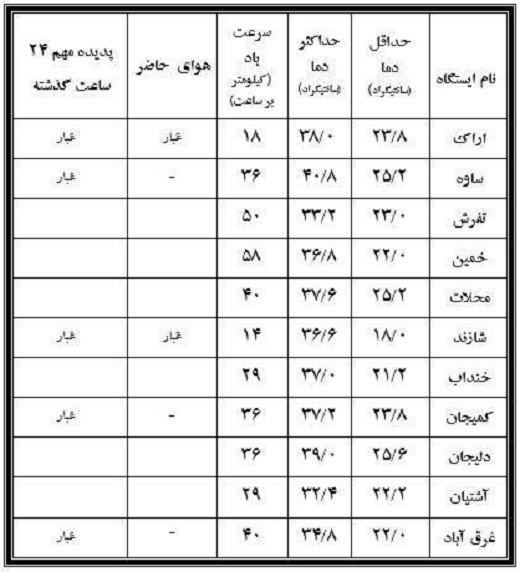 نام ایستگاه حداقل دما (سانتیگراد) حداکثر دما (سانتیگراد) سرعت باد (کیلومتر بر ساعت) هوای حاضر پدیده مهم ۲۴ ساعت گذشته
اراک ۲۳/۸ ۳۸/۰ ۱۸ غبار غبار
ساوه ۲۵/۲ ۴۰/۸ ۳۶ - غبار
تفرش ۲۳/۰ ۳۳/۲ ۵۰
خمین ۲۲/۰ ۳۶/۸ ۵۸
محلات ۲۵/۲ ۳۷/۶ ۴۰
شازند ۱۸/۰ ۳۶/۶ ۱۴ غبار غبار
خنداب ۲۱/۲ ۳۷/۰ ۲۹
کمیجان ۲۳/۸ ۳۷/۲ ۳۶ - غبار
دلیجان ۲۵/۶ ۳۹/۰ ۳۶
آشتیان ۲۲/۲ ۳۲/۴ ۲۹
غرق آباد ۲۲/۰ ۳۴/۸ ۴۰ - غبار